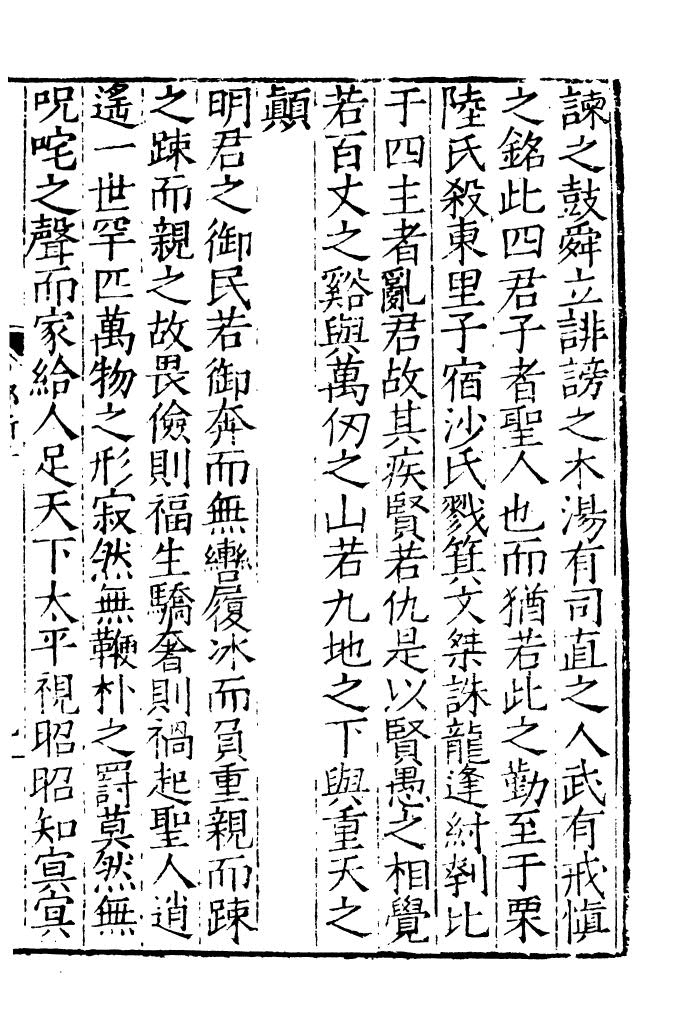 諫之鼓舜立誹謗之木湯有司直之人武有戒愼
之銘此四君子者聖人也而猶若此之勤至于栗
陸氏殺東里子宿沙氏戮箕文桀誅龍逢紂刳比
于四主者亂君故其疾賢若仇是以賢愚之相覺
若百丈之谿與萬仞之山若九地之下與重天之
顚
明君之御民若御奔而無轡履冰而負重親而踈
之踈而親之故畏儉則福生驕奢則禍起聖人逍
遙一世罕匹萬物之形寂然無鞭朴之罰莫然無
呪咤之聲而家給人足天下太平視昭昭知㝠㝠